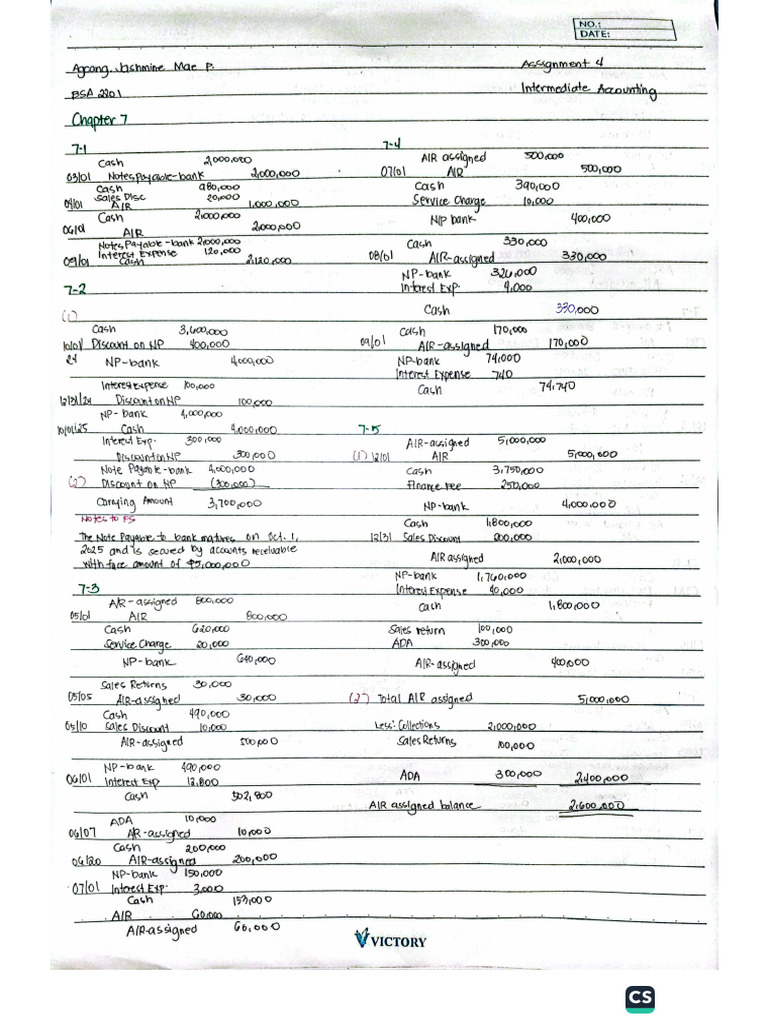 NO.:
DATE:
Agoang, Jashmine Mae P.
Assignment 4
BSA 2201
Intermediate Accounting
Chapter 7
7-1
Cash 2,000,000
03/01 Notes Payable-bank 2,000,000
Cash 980,000
Sales Disc 20,000
04/01 A/R 1,000,000
Cash 2,000,000
06/01 A/R 2,000,000
Notes Payable-bank 2,000,000
Interest Expense 120,000
09/01 Cash 2,120,000
7-2
(1)
Cash 3,600,000
10/01/24 Discount on NP 400,000
NP-bank 4,000,000
Interest expense 100,000
12/31/24 Discount on NP 100,000
NP-bank 4,000,000
10/01/25 Cash 4,000,000
Interest Exp. 300,000
Discount on NP 300,000
Note Payable-bank 4,000,000
(2) Discount on NP (300,000)
Carrying Amount 3,700,000
Notes to FS
The Note Payable to bank matures on Oct. 1,
2025 and is secured by accounts receivable
with face amount of ₱5,000,000
7-3
A/R-assigned 800,000
05/01 A/R 800,000
Cash 620,000
Service Charge 20,000
NP-bank 640,000
Sales Returns 30,000
05/05 A/R-assigned 30,000
Cash 490,000
05/10 Sales Discount 10,000
A/R-assigned 500,000
NP-bank 490,000
06/01 Interest Exp 12,800
Cash 502,800
ADA 10,000
06/07 AR-assigned 10,000
Cash 200,000
06/20 A/R-assigned 200,000
NP-bank 150,000
07/01 Interest Exp. 3,000
Cash 153,000
A/R 60,000
A/R-assigned 60,000
7-4
A/R assigned 500,000
07/01 A/R 500,000
Cash 390,000
Service Charge 10,000
N/P bank 400,000
Cash 330,000
08/01 A/R-assigned 330,000
NP-bank 326,000
Interest Exp. 4,000
Cash 330,000
Cash 170,000
09/01 A/R-assigned 170,000
NP-bank 74,000
Interest Expense 740
Cash 74,740
7-5
A/R-assigned 5,000,000
(1) 12/01 A/R 5,000,000
Cash 3,750,000
Finance Fee 250,000
NP-bank 4,000,000
Cash 1,800,000
12/31 Sales Discount 200,000
A/R assigned 2,000,000
NP-bank 1,760,000
Interest Expense 40,000
Cash 1,800,000
Sales return 100,000
ADA 300,000
A/R-assigned 400,000
(2) Total A/R assigned 5,000,000
Less: Collections 2,000,000
Sales Returns 100,000
ADA 300,000 2,400,000
A/R assigned balance 2,600,000
VICTORY
CS